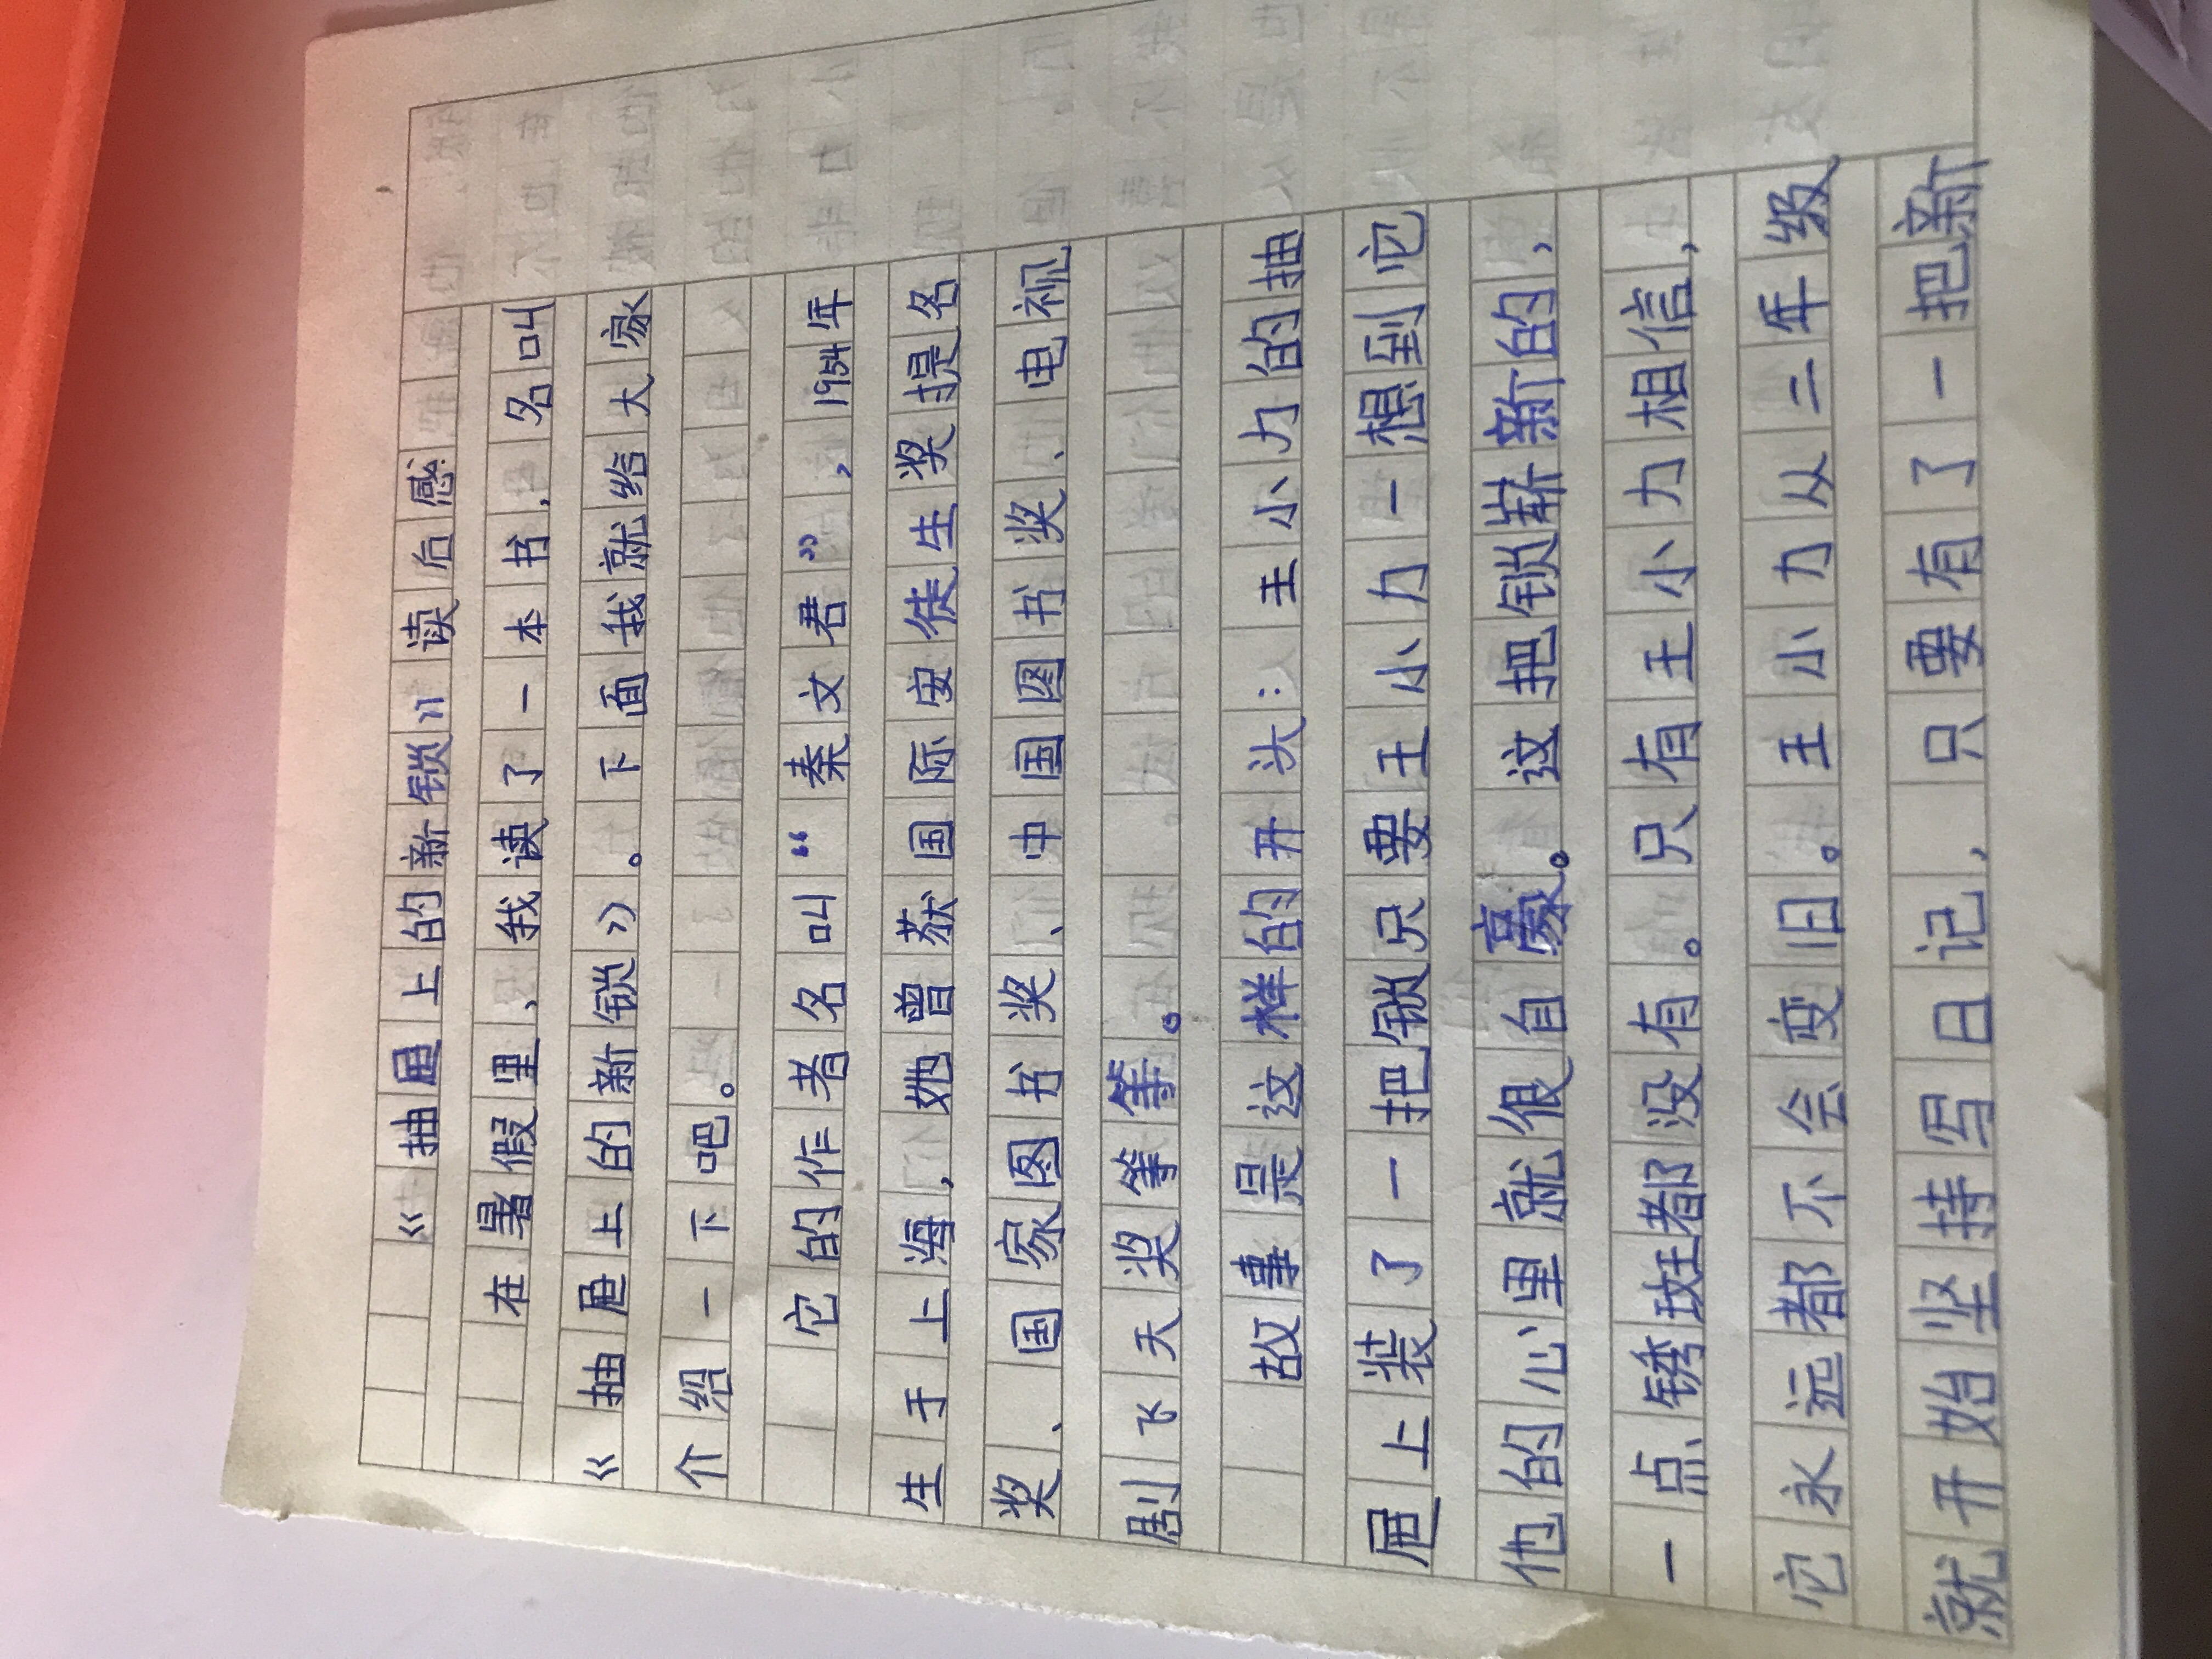 《抽屉上的新锁》读后感
在暑假里，我读了一本书，名叫
《抽屉上的新锁》。下面我就给大家
介绍一下吧。
它的作者名叫“秦文君”，1954年
生于上海，她曾获国际安徒生奖提名
奖、国家图书奖、中国图书奖、电视
剧飞天奖等等。
故事是这样的开头：王小力的抽
屉上装了一把锁只要王小力一想到它
他的心里就很自豪。这把锁崭新的，
一点锈斑都没有。只有王小力相信，
它永远都不会变旧。王小力从二年级
就开始坚持写日记，只要有了一把新